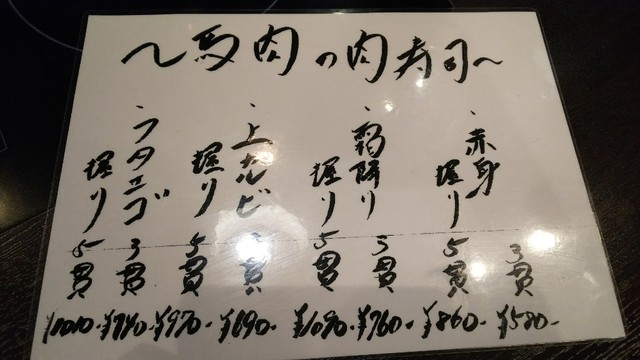 ～馬肉の肉寿司～
・赤身握り
3貫 ¥580-
5貫 ¥860-
・霜降り握り
3貫 ¥760-
5貫 ¥1090-
・上カルビ握り
3貫 ¥690-
5貫 ¥970-
・フタエゴ握り
3貫 ¥740-
5貫 ¥1010-